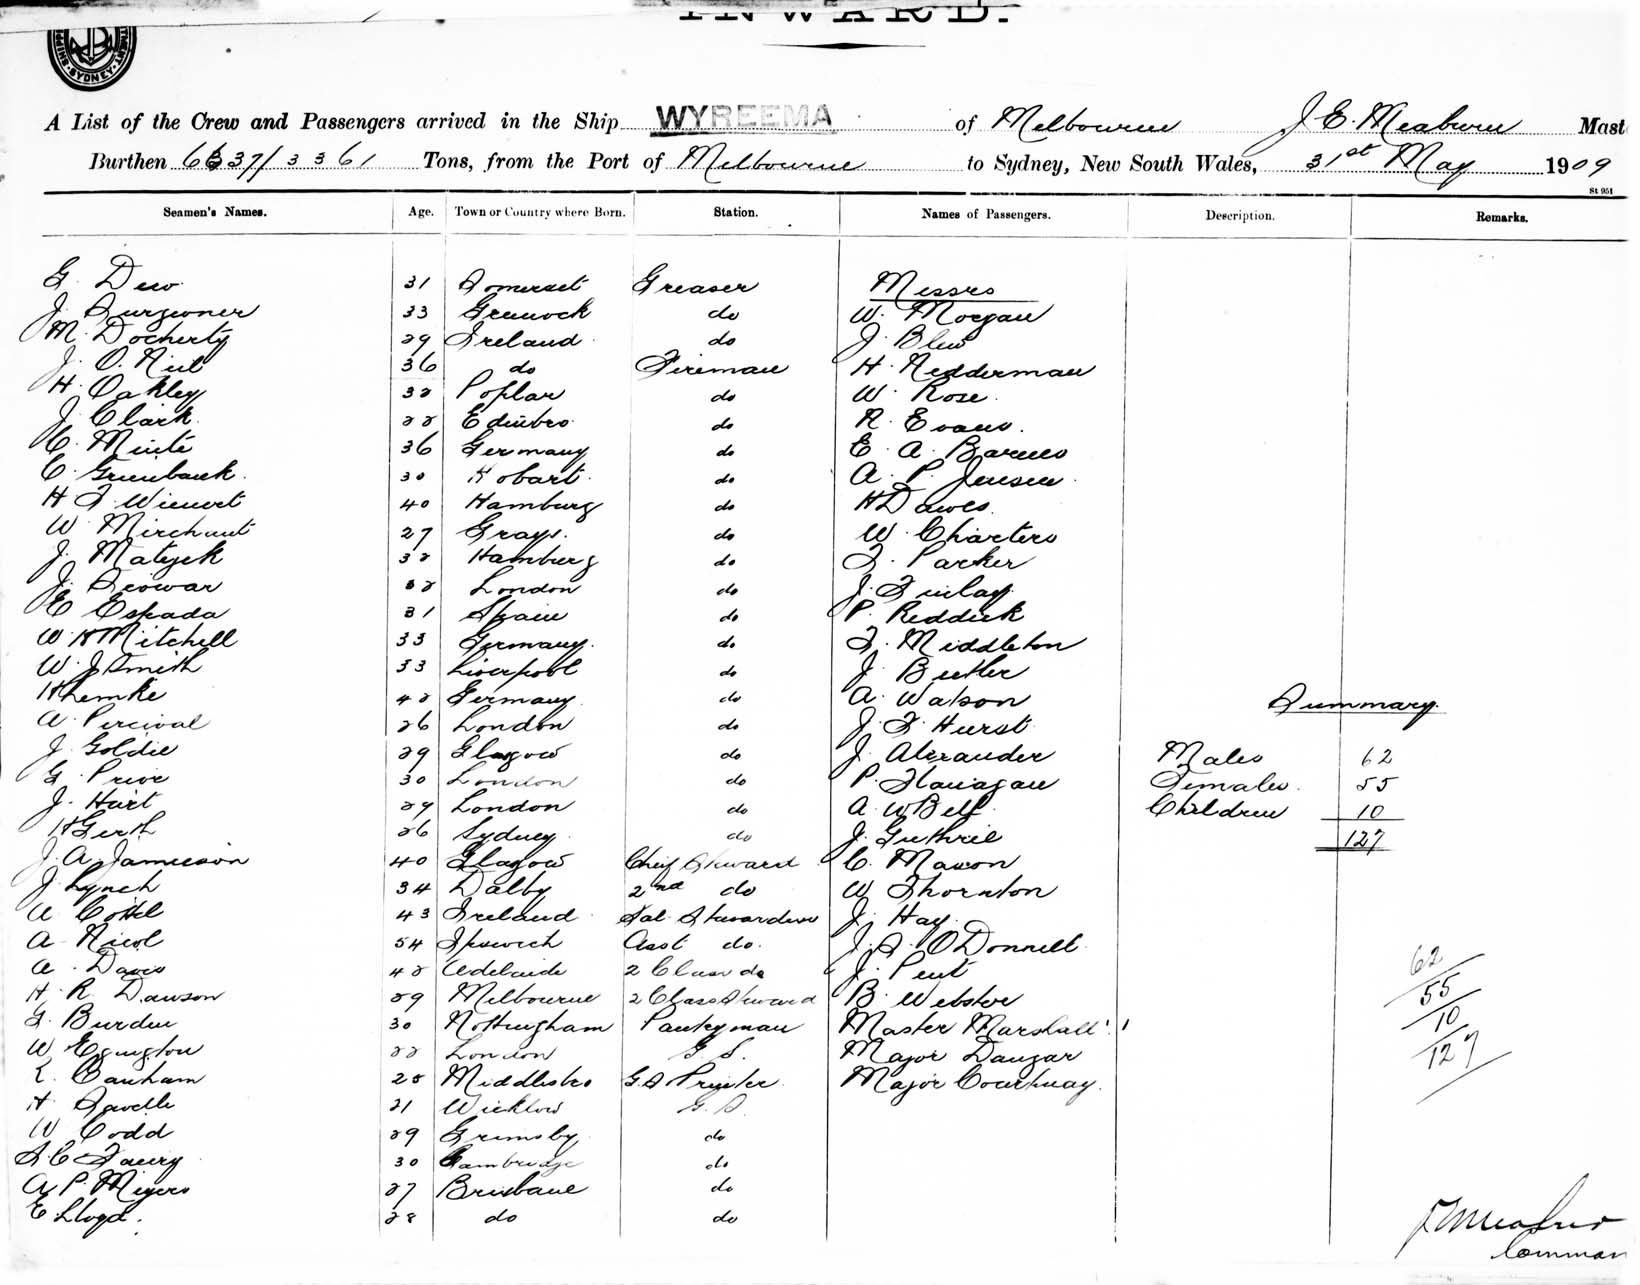 INWARD.
SYDNEY
A List of the Crew and Passengers arrived in the Ship WYREEMA of Melbourne J E. Meaburn Mast
Burthen 6337/3361 Tons, from the Port of Melbourne to Sydney, New South Wales, 31st May 1909
St 951
Seamen's Names. Age. Town or Country where Born. Station. Names of Passengers. Description. Remarks.
G. Dew 31 Somerset Greaser Messrs
J. Surgeoner 33 Greenock do W. Morgan
M. Docherty 29 Ireland do J. Blew
J. O. Neil 36 do Fireman H. Nedderman
H. Oakley 32 Poplar do W. Rose
J. Clark 22 Edinbro do R. Evans.
C. 36 Germany do E. A. Barnes
C. Greenbank 30 Hobart do A. P. Jensen
H F. Wienert 40 Hamburg do H Dawes
W. Mirchant 27 Grays. do W. Charters
J. Matyck 32 Hamburg do F. Parker
J. 32 London do J. Finlay
E Espada 31 Spain do P. Reddick
W. H Mitchell 33 Germany. do F. Middleton
W. J Smith 33 Liverpool do J. Butler
H Lemke 42 Germany do A. Watson
Summary.
A. Percival 26 London do J. F. Hurst
J. Goldie 29 Glasgow do J. Alexander Males 62
G. Price 30 London do P. Flanagan Females. 55
J. Hart 29 London do A. W Bell Children 10
H Gerth 26 Sydney do J. Guthrie 127
J. A. Jamieson 40 Glasgow Chief Steward C. Mason
J. Lynch 34 Dalby 2nd do W Thornton
A Cottel 43 Ireland Sal. Stewardess J. Hay
A. Nicol 54 Ipswich Asst do. J. S. O'Donnell
A. Davis 42 Adelaide 2 Class do J. Pent 62
H. R. Dawson 29 Melbourne 2 Class Steward B. Webster 55
G. Burden 30 Nottingham Pantryman Master Marshall 1 10
W Eginton 22 London G. S. Major Dangar 127
L. Canham 25 Middlesbro G.S Printer Major Courtenay.
H. Savelle 21 Wicklow G. S.
W Codd 29 Grimsby do
S. C 30 Cambridge do
A P. Meyers 27 Brisbane do
E. Lloyd. 28 do do
Comman